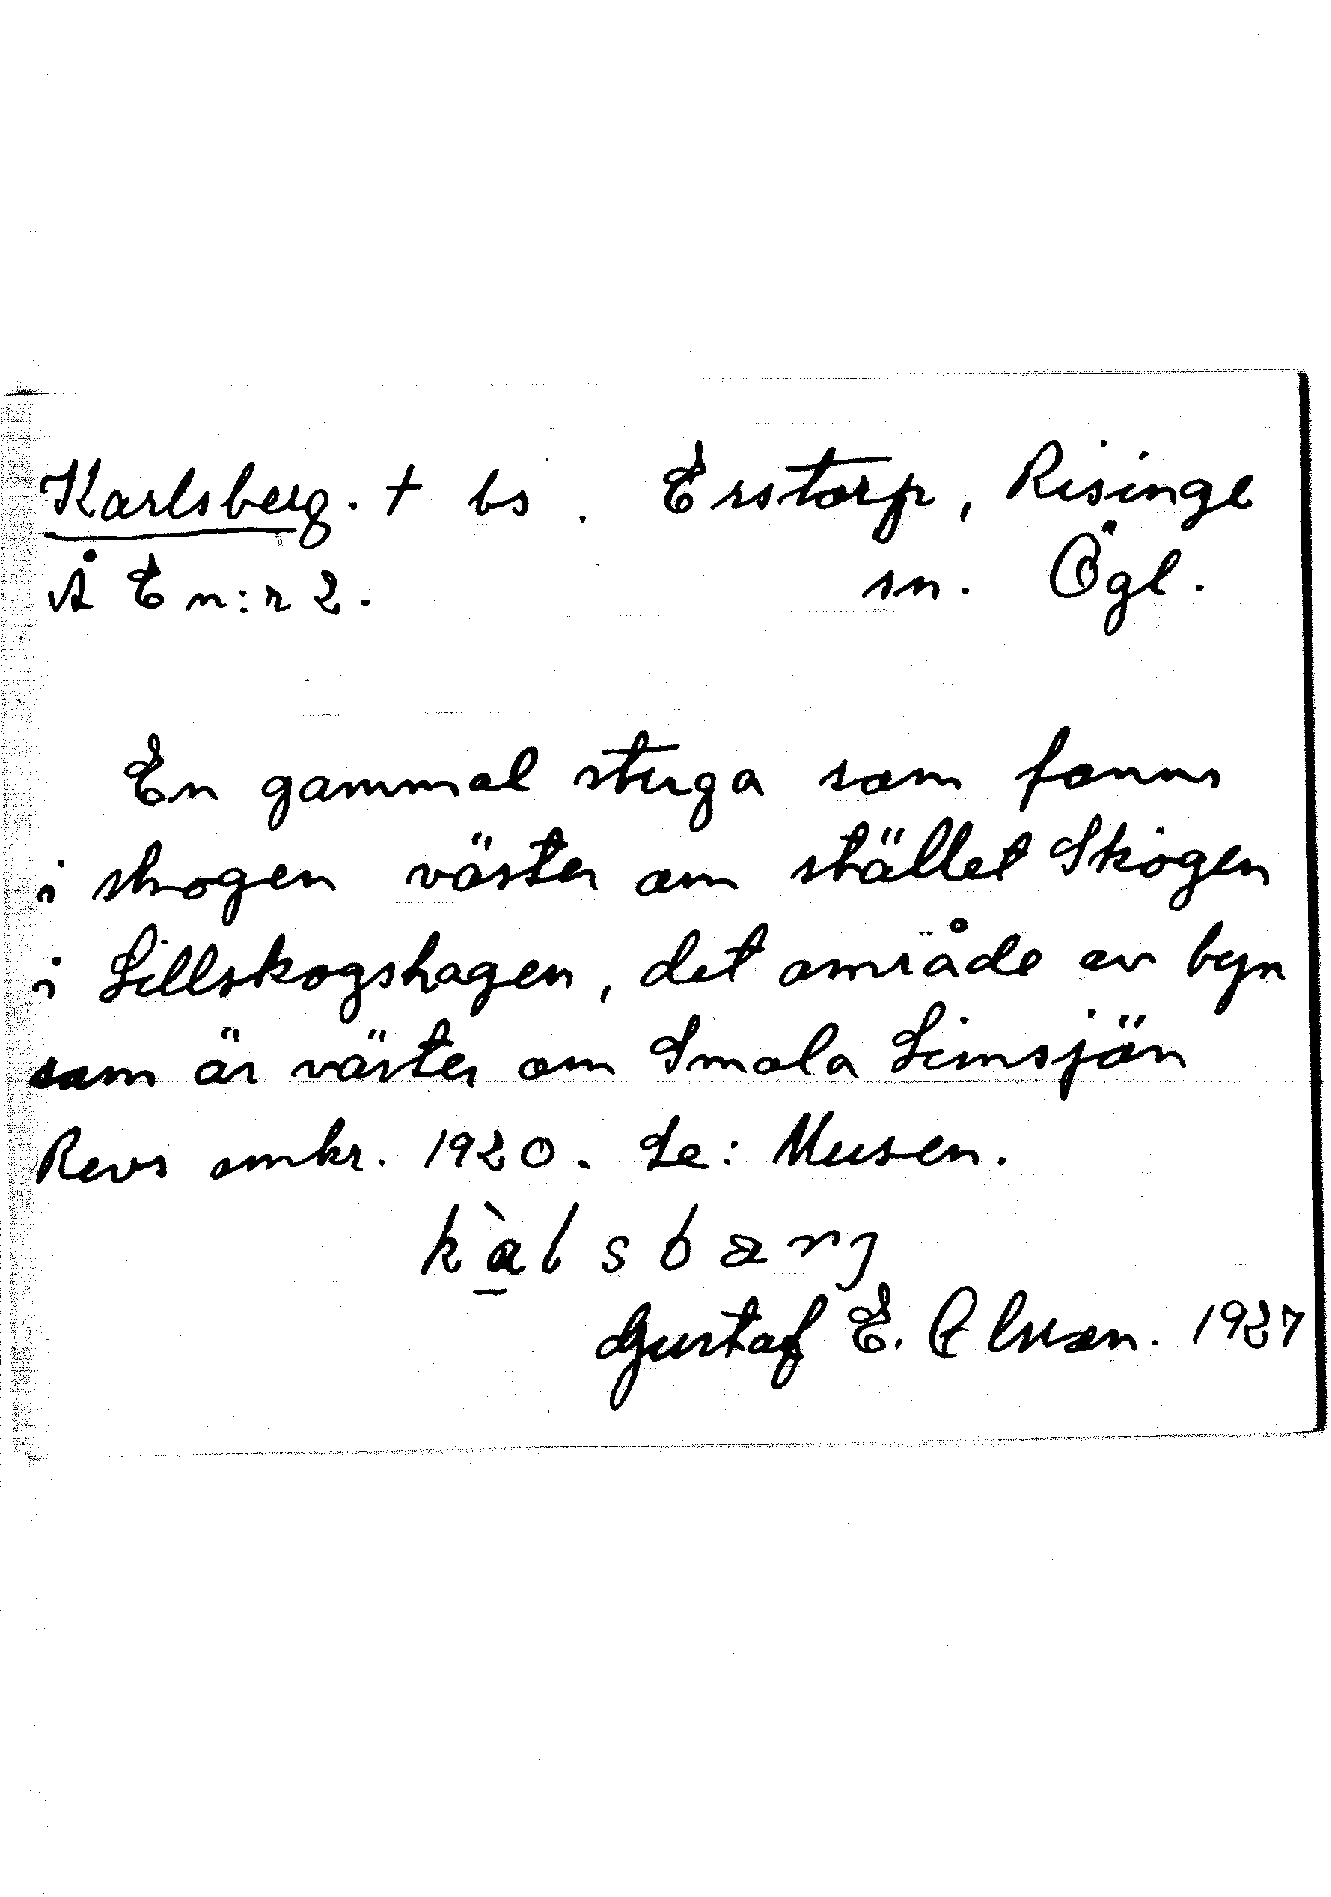 Karlsberg. † bs. Erstorp, Risinge
Å E n:r 2. sn. Ögl.
En gammal stuga som fanns
i skogen väster om stället Skogen
i Lillskogshagen, det område av byn
som är väster om Smala Limsjön
Revs omkr. 1920. Se: Musen.
kàlsbærj
Gustaf E. Olsson. 1927